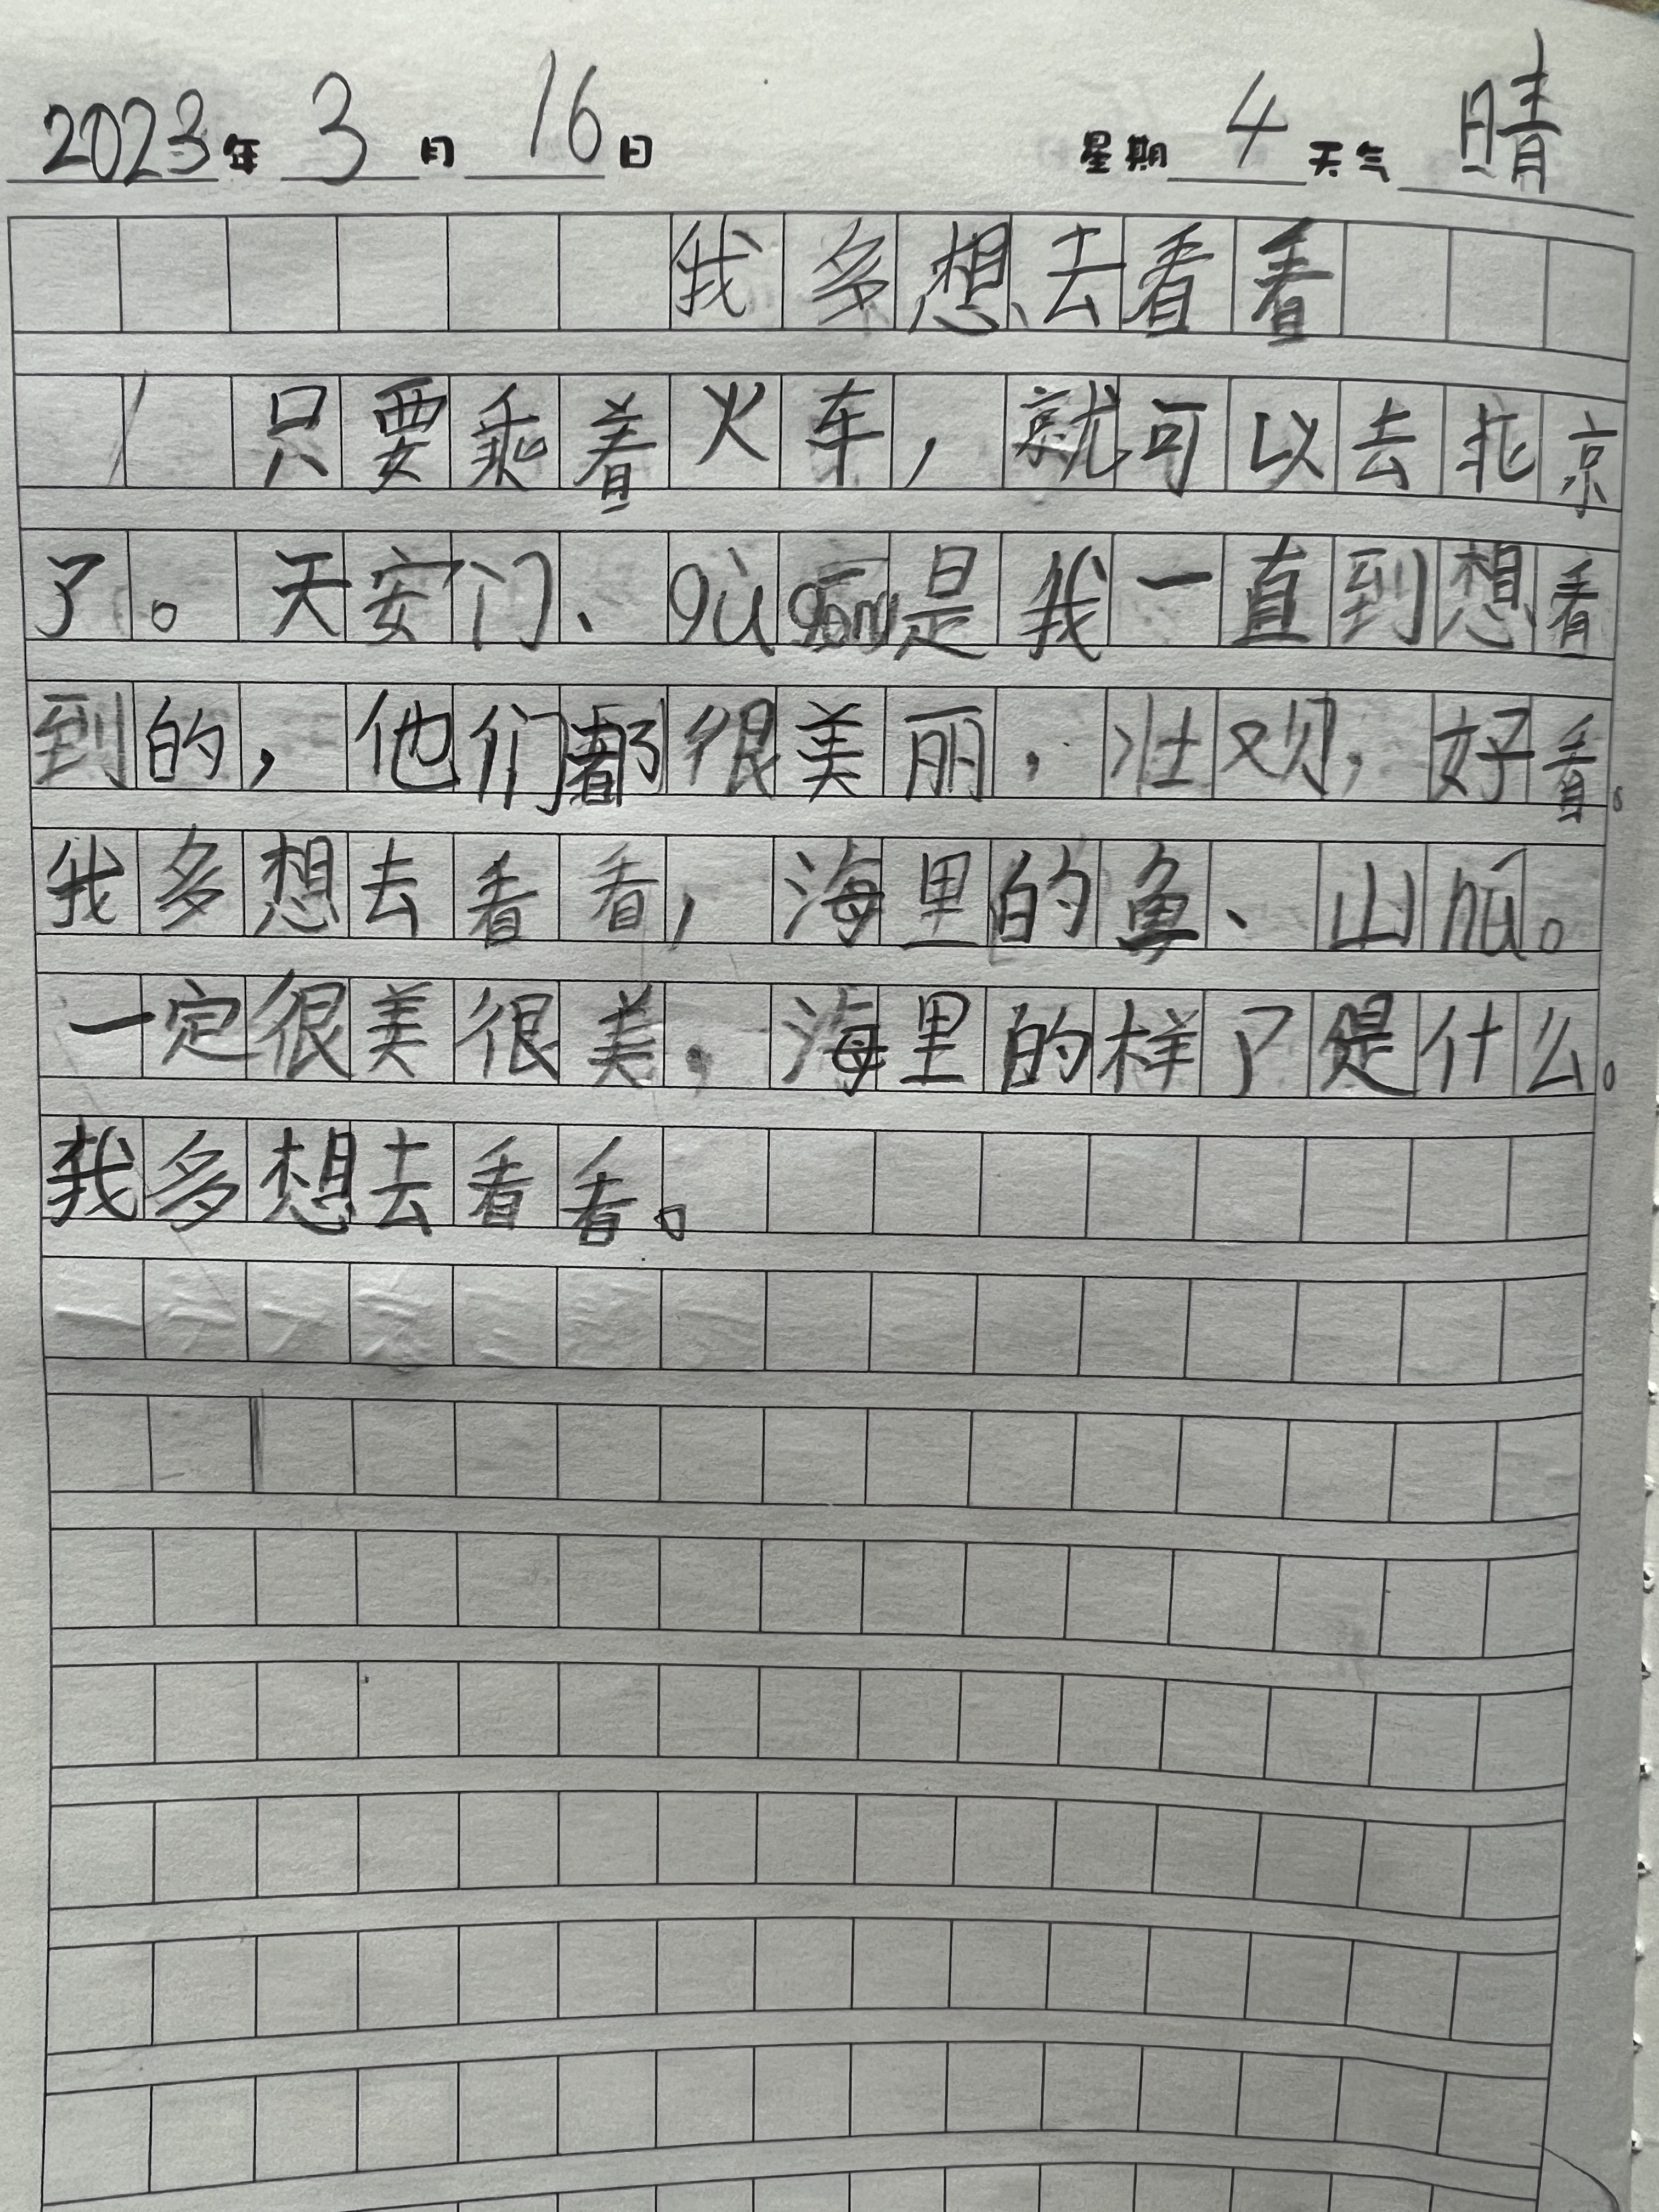 2023年3月16日 星期4天气晴
我多想去看看
只要乘着火车，就可以去北京
了。天安门、gù gōng是我一直到想看
到的，他们都很美丽，壮观，好看。
我多想去看看，海里的鱼、山hú。
一定很美很美，海里的样了是什么。
我多想去看看。